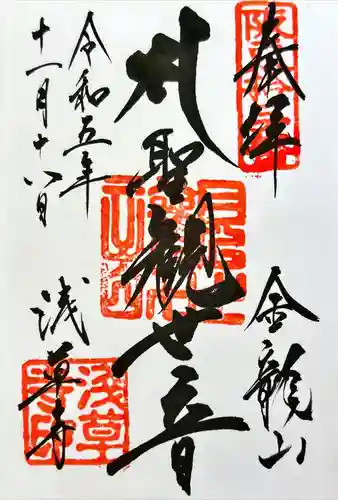 奉拝
金龍山
聖観世音
浅草寺
令和五年
十一月十八日
浅草寺印